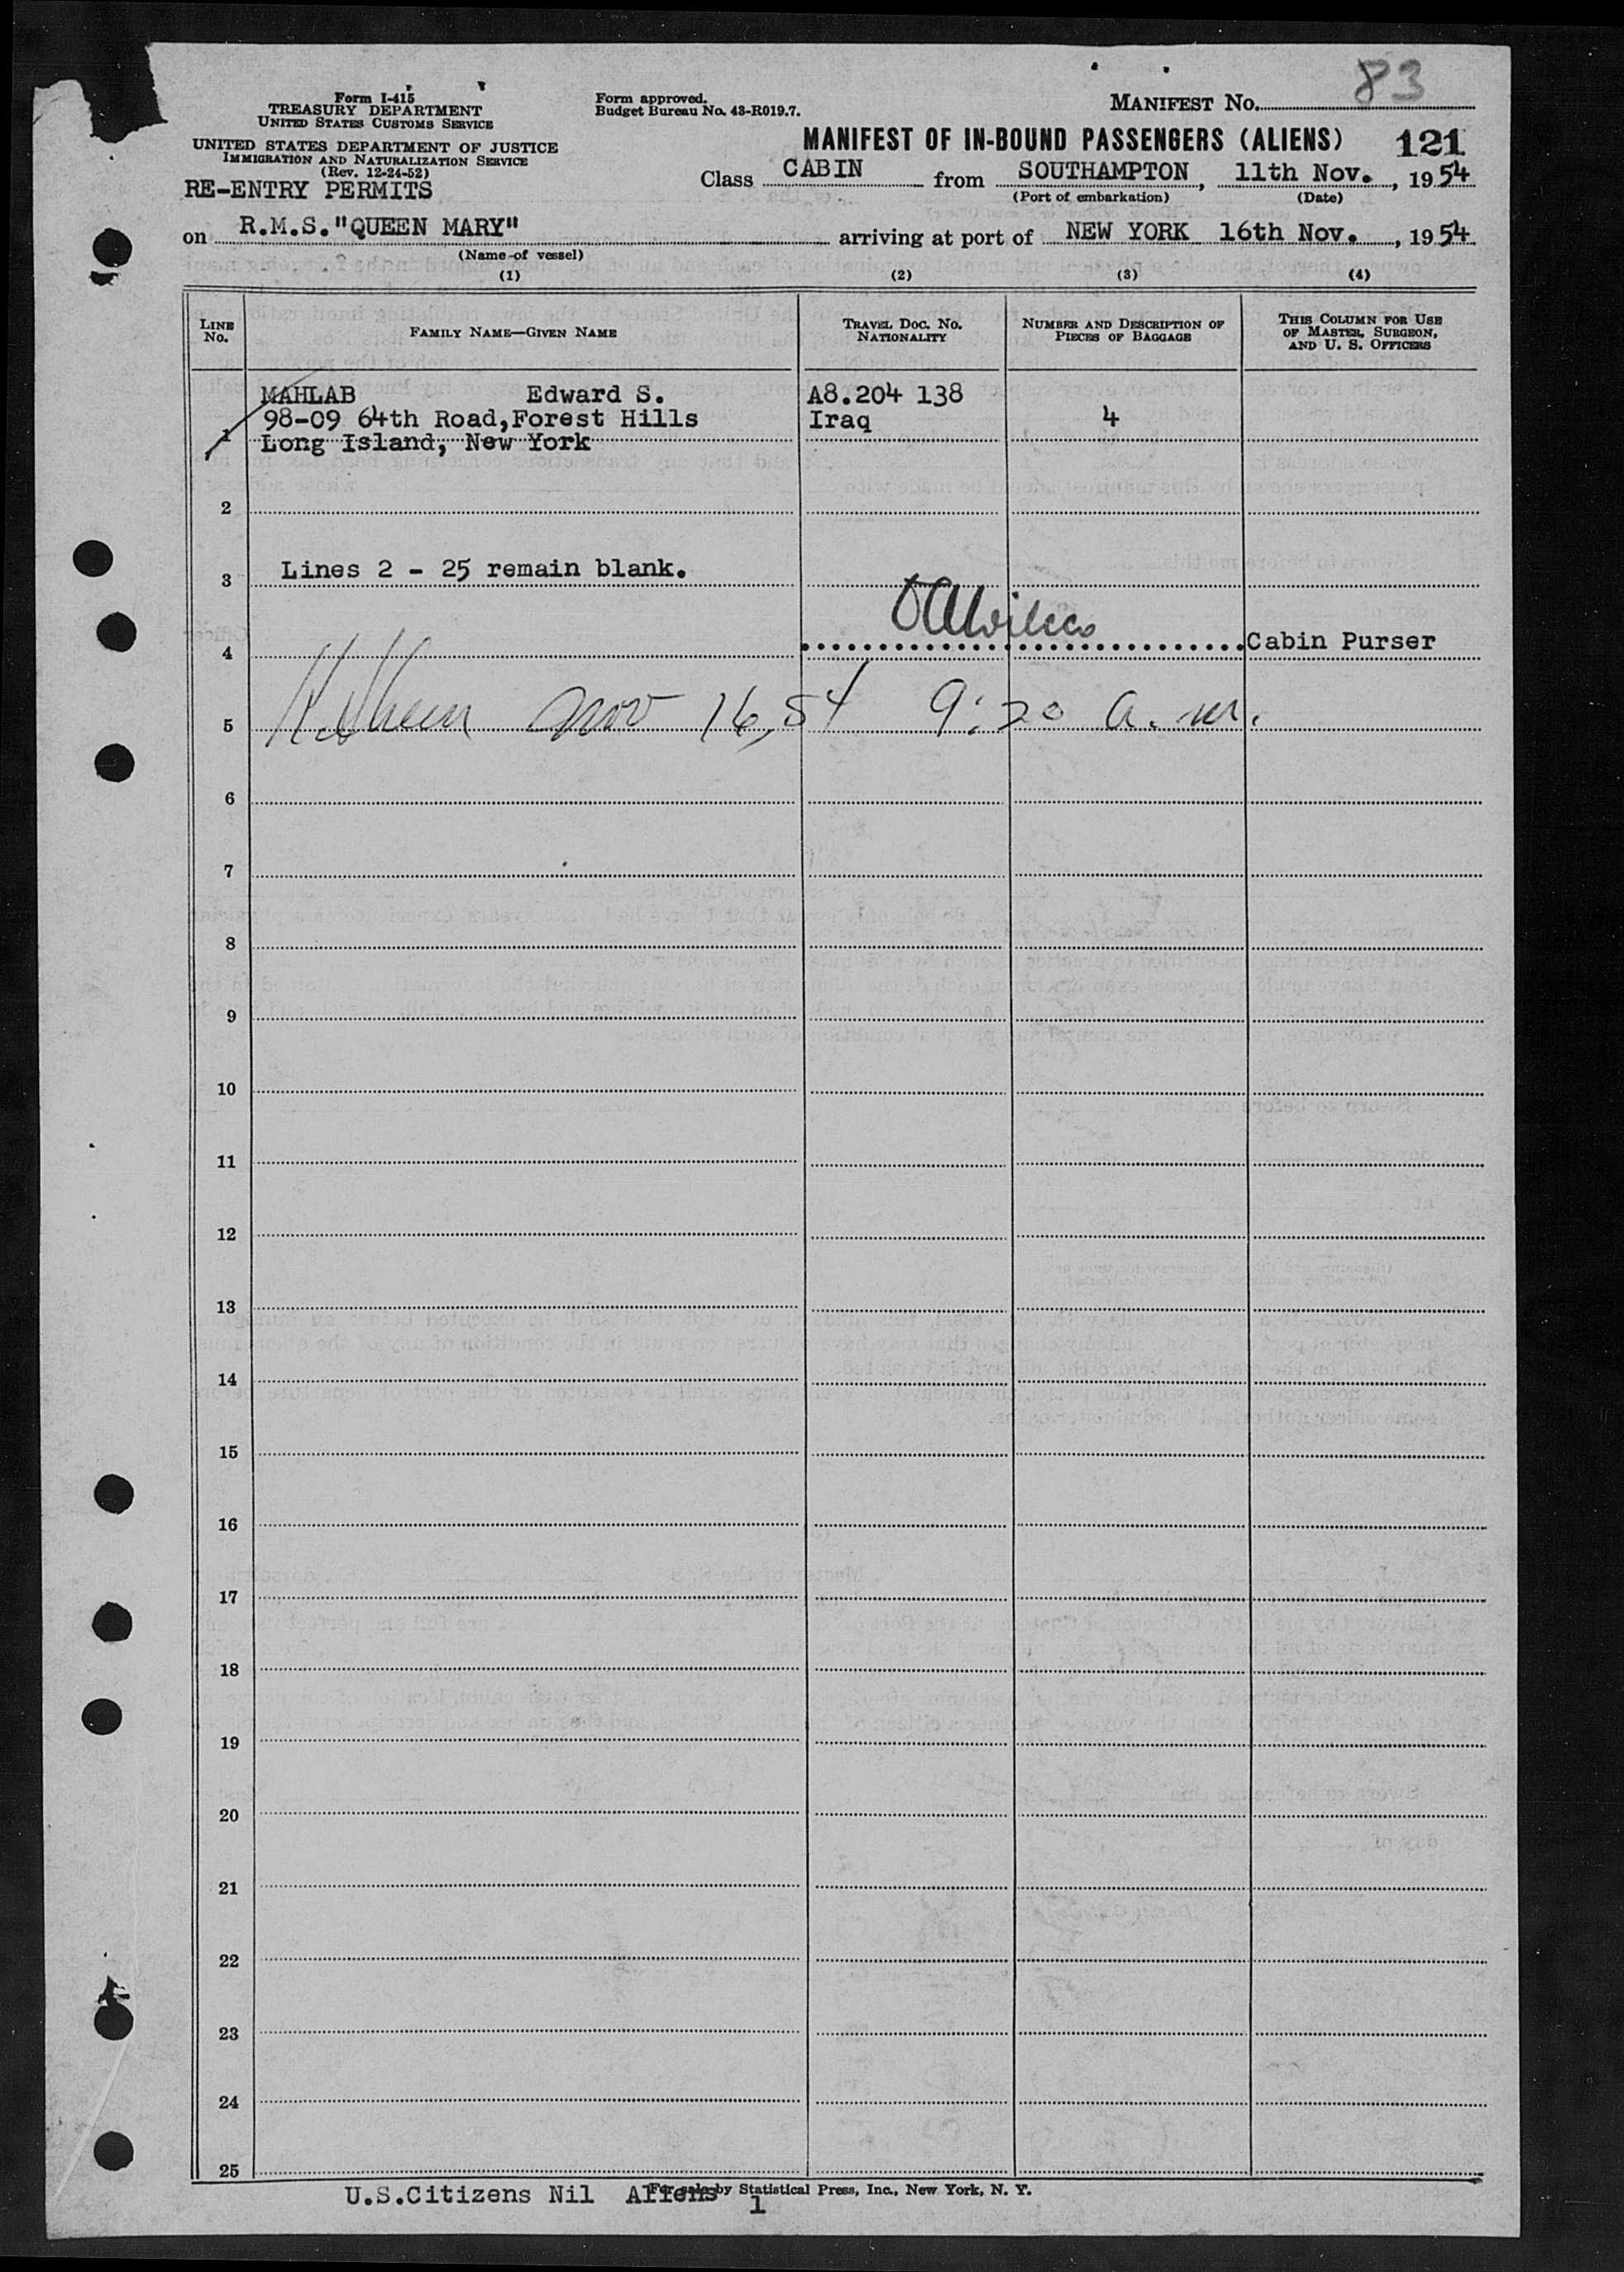 83
Form I-415
TREASURY DEPARTMENT
UNITED STATES CUSTOMS SERVICE
UNITED STATES DEPARTMENT OF JUSTICE
IMMIGRATION AND NATURALIZATION SERVICE
(Rev. 12-24-52)
RE-ENTRY PERMITS
Form approved.
Budget Bureau No. 43-R019.7.
MANIFEST No.
MANIFEST OF IN-BOUND PASSENGERS (ALIENS) 121
Class CABIN from SOUTHAMPTON, 11th Nov., 1954
(Port of embarkation) (Date)
on R.M.S."QUEEN MARY" arriving at port of NEW YORK 16th Nov., 1954
(Name of vessel)
(1) (2) (3) (4)
LINE No. FAMILY NAME—GIVEN NAME TRAVEL DOC. NO. NATIONALITY NUMBER AND DESCRIPTION OF PIECES OF BAGGAGE THIS COLUMN FOR USE OF MASTER, SURGEON, AND U. S. OFFICERS
MAHLAB Edward S. A8.204 138
98-09 64th Road,Forest Hills Iraq 4
1 Long Island, New York
2
3 Lines 2 - 25 remain blank.
4 Cabin Purser
5 Nov 16, 54 9:20 a.m.
6
7
8
9
10
11
12
13
14
15
16
17
18
19
20
21
22
23
24
25
For sale by Statistical Press, Inc., New York, N. Y.
U.S.Citizens Nil Aliens 1